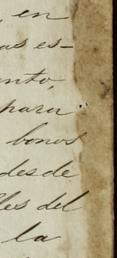 , en
as es-
ento,
para
bonos
des de
lles del
la